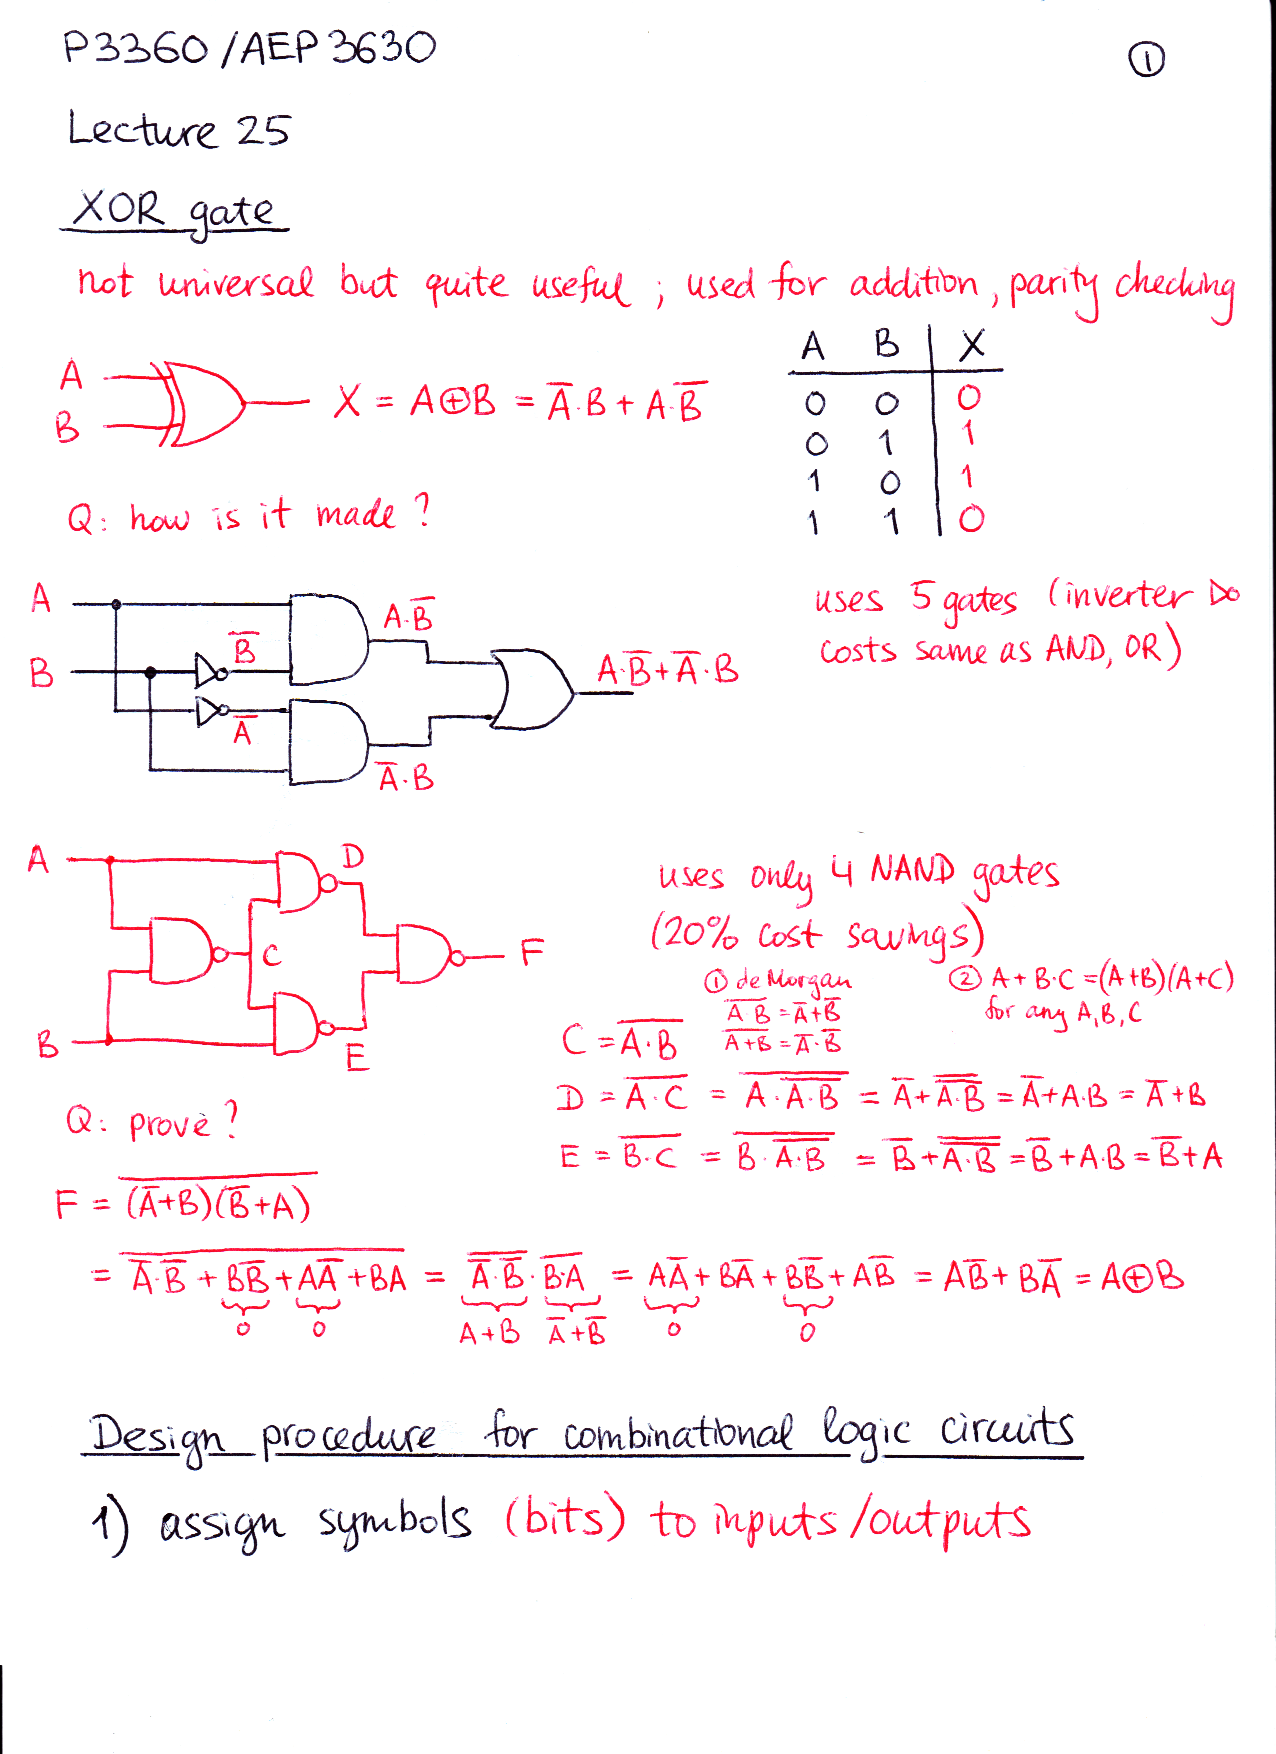 P3360/AEP3630
①
Lecture 25
XOR gate
not universal but quite useful ; used for addition, parity checking
A B X
A
B
X = A⊕B = A̅·B + A·B̅
0 0 0
0 1 1
1 0 1
1 1 0
Q: how is it made?
A
B
B̅
A̅
A·B̅
A̅·B
A·B̅+A̅·B
uses 5 gates (inverter
costs same as AND, OR)
A
B
C
D
E
F
uses only 4 NAND gates
(20% cost savings)
① de Morgan
$\overline{A B} = \overline{A}+\overline{B}$
$\overline{A+B} = \overline{A}\cdot\overline{B}$
② A + B·C = (A+B)(A+C)
for any A,B,C
$C = \overline{A\cdot B}$
$D = \overline{A\cdot C} = \overline{A\cdot\overline{A\cdot B}} = \overline{A}+\overline{\overline{A\cdot B}} = \overline{A}+A\cdot B = \overline{A}+B$
$E = \overline{B\cdot C} = \overline{B\cdot\overline{A\cdot B}} = \overline{B}+\overline{\overline{A\cdot B}} = \overline{B}+A\cdot B = \overline{B}+A$
Q: prove?
$F = \overline{(\overline{A}+B)(\overline{B}+A)}$
$= \overline{\overline{A}\cdot\overline{B}+B\overline{B}+A\overline{A}+BA} = \overline{\overline{A}\cdot\overline{B}}\cdot\overline{B\cdot A} = A\overline{A}+B\overline{A}+B\overline{B}+A\overline{B} = A\overline{B}+B\overline{A} = A⊕B$
0 0 A+B A̅+B̅ 0 0
Design procedure for combinational logic circuits
1) assign symbols (bits) to inputs/outputs